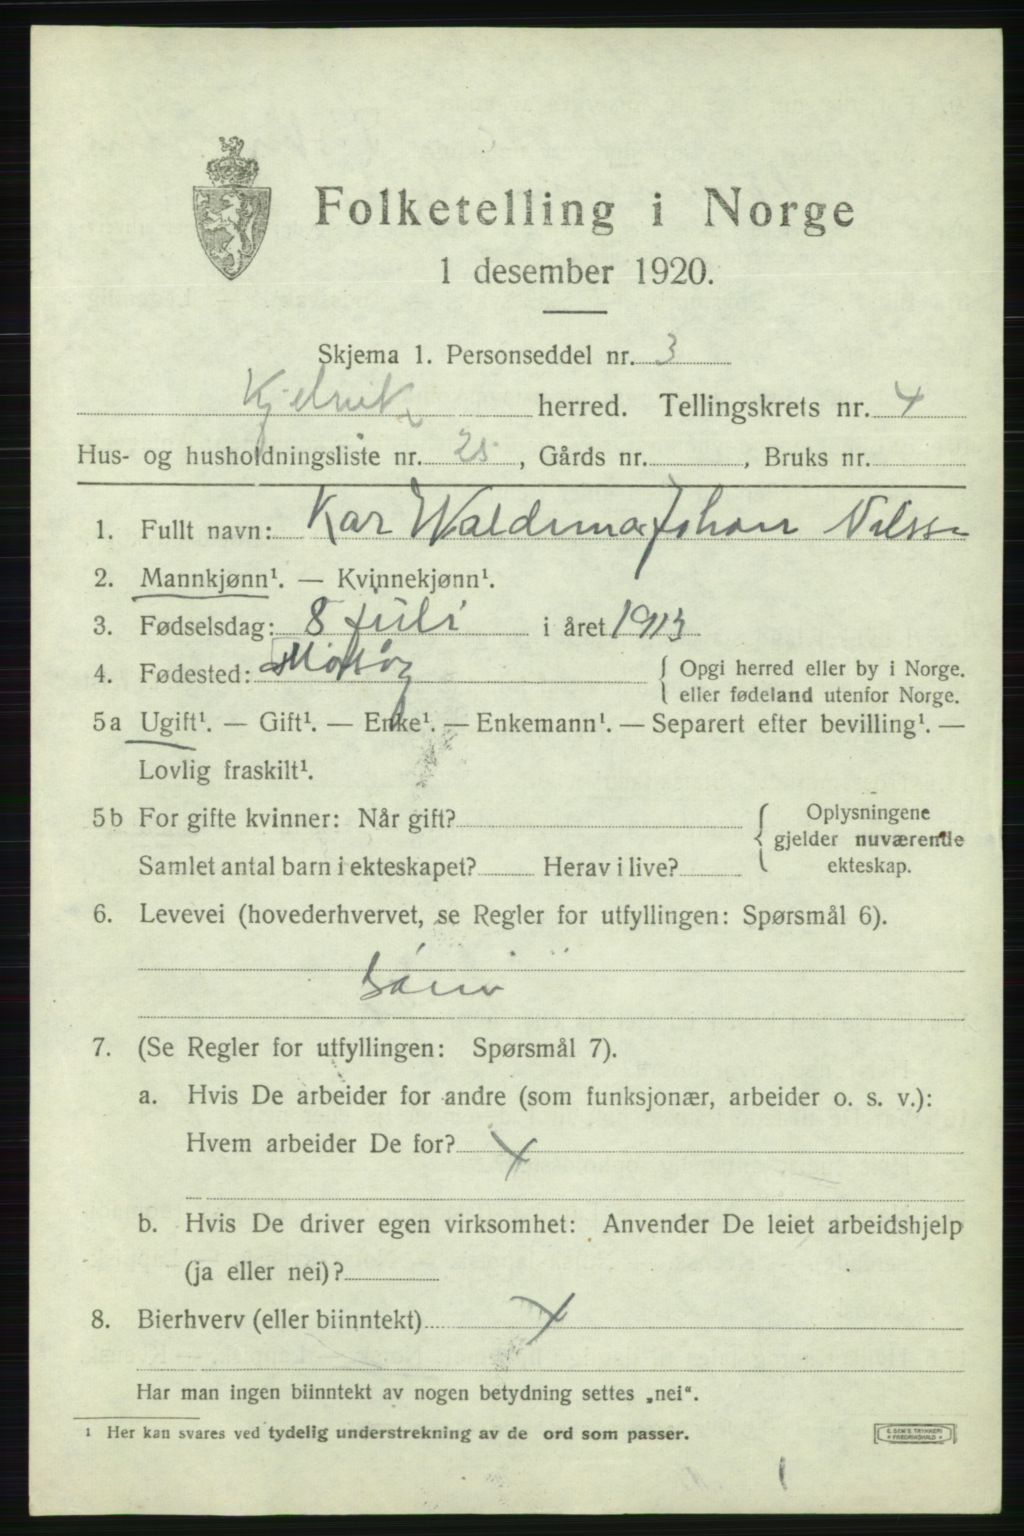 Folketelling i Norge
1 desember 1920.
Skjema 1. Personseddel nr. 3
Kjelvik herred. Tellingskrets nr. 4
Hus- og husholdningsliste nr. 25, Gårds nr. , Bruks nr.
1. Fullt navn: Kar Waldemar Johan Nilsse
2. Mannkjønn¹. — Kvinnekjønn¹.
3. Fødselsdag: 8 juli i året 1913
4. Fødested: { Opgi herred eller by i Norge.
eller fødeland utenfor Norge.
5a Ugift¹. — Gift¹. — Enke¹. — Enkemann¹. — Separert efter bevilling¹. —
Lovlig fraskilt¹.
5b For gifte kvinner: Når gift? { Oplysningene
gjelder nuværende
Samlet antal barn i ekteskapet? Herav i live? ekteskap.
6. Levevei (hovederhvervet, se Regler for utfyllingen: Spørsmål 6).
7. (Se Regler for utfyllingen: Spørsmål 7).
a. Hvis De arbeider for andre (som funksjonær, arbeider o. s. v.):
Hvem arbeider De for? x
b. Hvis De driver egen virksomhet: Anvender De leiet arbeidshjelp
(ja eller nei)?
8. Bierhverv (eller biinntekt) x
Har man ingen biinntekt av nogen betydning settes „nei“.
¹ Her kan svares ved tydelig understrekning av de ord som passer.
E. SEM'S TRYKKERI
FREDRIKSHALD